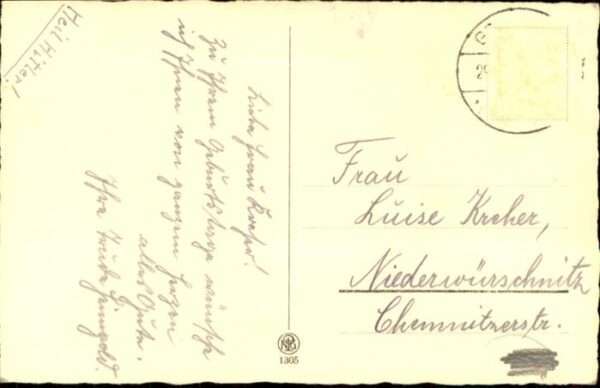 Heil Hitler!
Liebe Frau Kreher!
Zu Ihrem Geburtstage wünsche
ich Ihnen von ganzem Herzen
alles Gute.
Ihre
Frau
Luise Kreher,
Niederwürschnitz
Chemnitzerstr.
1365